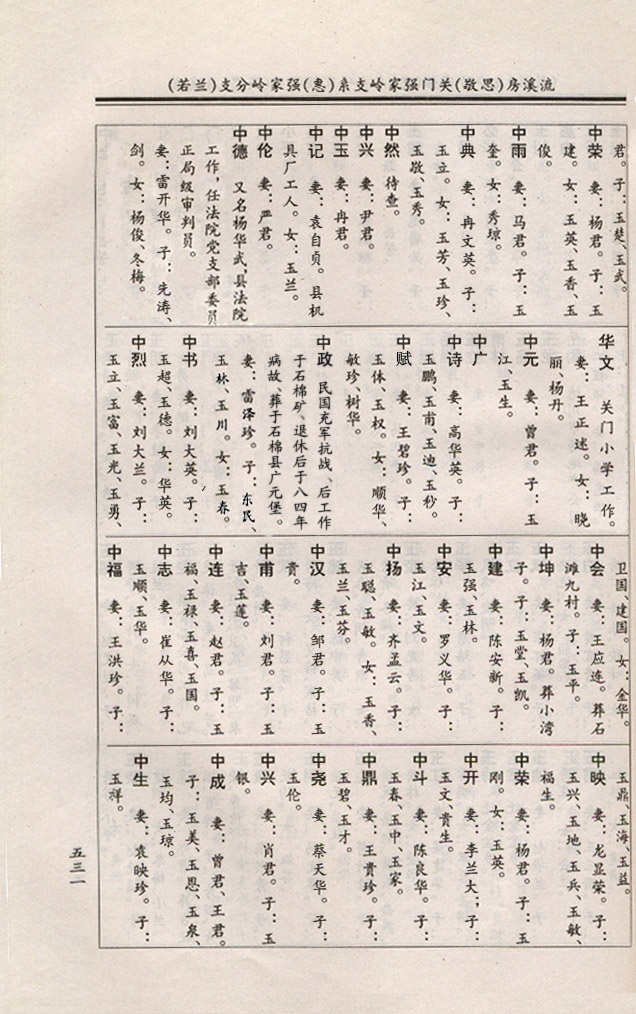 流溪房(敬思)关门强家岭支系(惠)强家岭分支(若兰)
君。子：玉楚、玉武。
中荣 妻：杨君。子：玉
建。女：玉英、玉香、玉
俊。
中雨 妻：马君。子：玉
奎。女：秀琼。
中典 妻：冉文英。子：
玉立。女：玉芳、玉珍、
玉敬、玉秀。
中然 待查。
中兴 妻：尹君。
中玉 妻：冉君。
中记 妻：袁自贞。县机
具厂工人。女：玉兰。
中伦 妻：严君。
中德 又名杨华武，县法院
工作，任法院党支部委员
正局级审判员。
妻：雷开华。子：先涛、
剑。女：杨俊、冬梅。
华文 关门小学工作。
妻：王正述。女：晓
丽、杨丹。
中元 妻：曾君。子：玉
江、玉生。
中广
中诗 妻：高华英。子：
玉鹏、玉甫、玉迪、玉秒。
中赋 妻：王碧珍。子：
玉体、玉权。女：顺华、
敏珍、树华。
中政 民国充军抗战、后工作
于石棉矿、退休后于八四年
病故、葬于石棉县广元堡。
妻：雷泽珍。子：东民、
玉林、玉川。女：玉春。
中书 妻：刘大英。子：
玉超、玉德。女：华英。
中烈 妻：刘大兰。子：
玉立、玉富、玉光、玉勇、
卫国、建国。女：金华。
中会 妻：王应连。葬石
滩九村。子：玉平。
中坤 妻：杨君。葬小湾
子。子：玉堂、玉凯。
中建 妻：陈安新。子：
玉强、玉林。
中安 妻：罗义华。子：
玉江、玉文。
中扬 妻：齐孟云。子：
玉聪、玉敏。女：玉香、
玉兰、玉芬。
中汉 妻：邹君。子：玉
贵。
中甫 妻：刘君。子：玉
吉、玉莲。
中连 妻：赵君。子：玉
福、玉禄、玉喜、玉国。
中志 妻：崔从华。子：
玉顺、玉华。
中福 妻：王洪珍。子：
玉鼎、玉海、玉益。
中映 妻：龙显荣。子：
玉兴、玉地、玉兵、玉敏、
福生。
中荣 妻：杨君。子：玉
刚。女：玉英。
中开 妻：李兰大；子：
玉文、贵生。
中斗 妻：陈良华。子：
玉春、玉中、玉家。
中鼎 妻：王贵珍。子：
玉碧、玉才。
中尧 妻：蔡天华。子：
玉伦。
中兴 妻：肖君。子：玉
银。
中成 妻：曾君、王君。
子：玉美、玉恩、玉泉、
玉均、玉琼。
中生 妻：袁映珍。子：
玉祥。
五三一